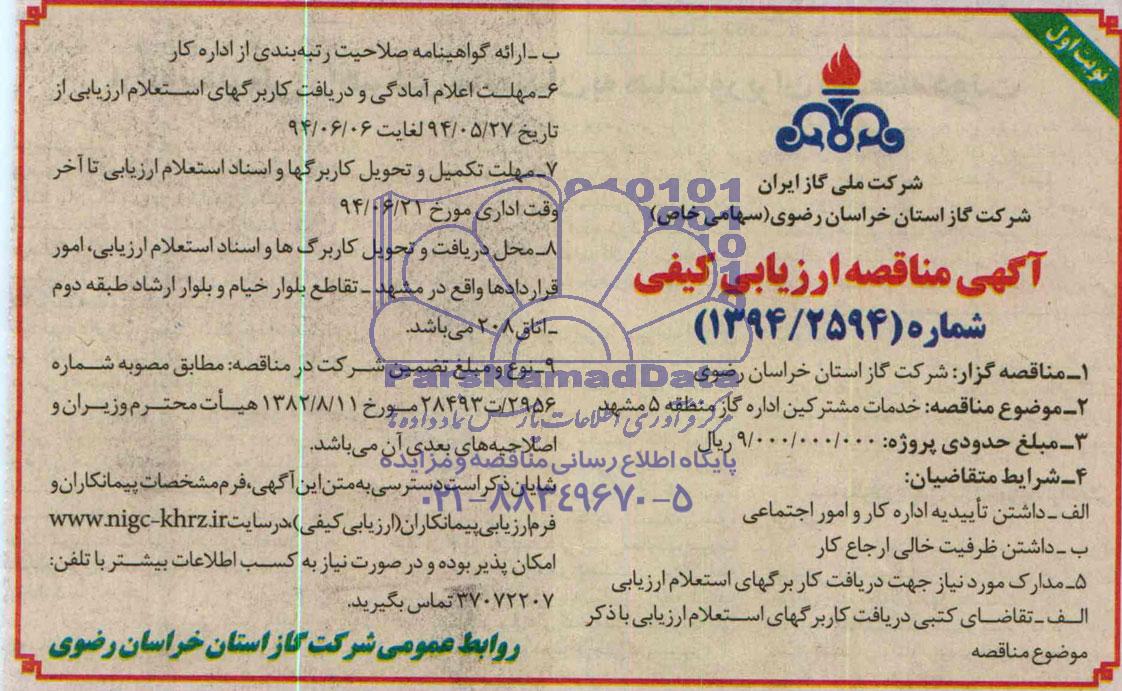 نوبت اول
شرکت ملی گاز ایران
شرکت گاز استان خراسان رضوی(سهامی خاص)
آگهی مناقصه ارزیابی کیفی
شماره (۱۳۹۴/۲۵۹۴)
۱ـ مناقصه گزار: شرکت گاز استان خراسان رضوی
۲ـ موضوع مناقصه: خدمات مشترکین اداره گاز منطقه ۵ مشهد
۳ـ مبلغ حدودی پروژه: ۹/۰۰۰/۰۰۰/۰۰۰ ریال
۴ـ شرایط متقاضیان:
الف ـ داشتن تأییدیه اداره کار و امور اجتماعی
ب ـ داشتن ظرفیت خالی ارجاع کار
۵ـ مدارک مورد نیاز جهت دریافت کاربرگهای استعلام ارزیابی
الف ـ تقاضای کتبی دریافت کاربرگهای استعلام ارزیابی با ذکر
موضوع مناقصه
ب ـ ارائه گواهینامه صلاحیت رتبه‌بندی از اداره کار
۶ـ مهلت اعلام آمادگی و دریافت کاربرگهای استعلام ارزیابی از
تاریخ ۹۴/۰۵/۲۷ لغایت ۹۴/۰۶/۰۶
۷ـ مهلت تکمیل و تحویل کاربرگها و اسناد استعلام ارزیابی تا آخر
وقت اداری مورخ ۹۴/۰۶/۲۱
۸ـ محل دریافت و تحویل کاربرگ ها و اسناد استعلام ارزیابی، امور
قراردادها واقع در مشهد ـ تقاطع بلوار خیام و بلوار ارشاد طبقه دوم
ـ اتاق ۲۰۸ می‌باشد.
۹ـ نوع و مبلغ تضمین شرکت در مناقصه: مطابق مصوبه شماره
۲۹۵۶/ت۲۸۴۹۳ مورخ ۱۳۸۲/۸/۱۱ هیأت محترم وزیران و
اصلاحیه‌های بعدی آن می‌باشد.
شایان ذکر است دسترسی به متن این آگهی، فرم مشخصات پیمانکاران و
فرم ارزیابی پیمانکاران (ارزیابی کیفی)، در سایت www.nigc-khrz.ir
امکان پذیر بوده و در صورت نیاز به کسب اطلاعات بیشتر با تلفن:
۳۷۰۷۲۲۰۷ تماس بگیرید.
روابط عمومی شرکت گاز استان خراسان رضوی
ParsNamadData
مرکز فرآوری اطلاعات پارس نماد داده‌ها
پایگاه اطلاع رسانی مناقصه و مزایده
۰۲۱-۸۸۳۴۹۶۷۰-۵